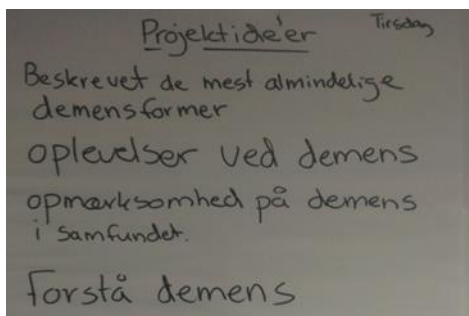 Projektide'er Tirsdag
Beskrevet de mest almindelige
demensformer
oplevelser ved demens
opmærksomhed på demens
i samfundet.
Forstå demens